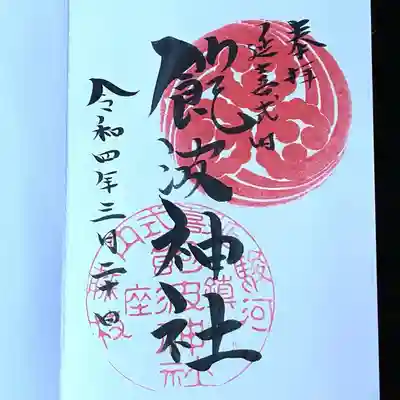 奉拝
延喜式内
飽波神社
令和四年三月二十日
延喜式内
駿河
藤枝
鎮座
飽波神社